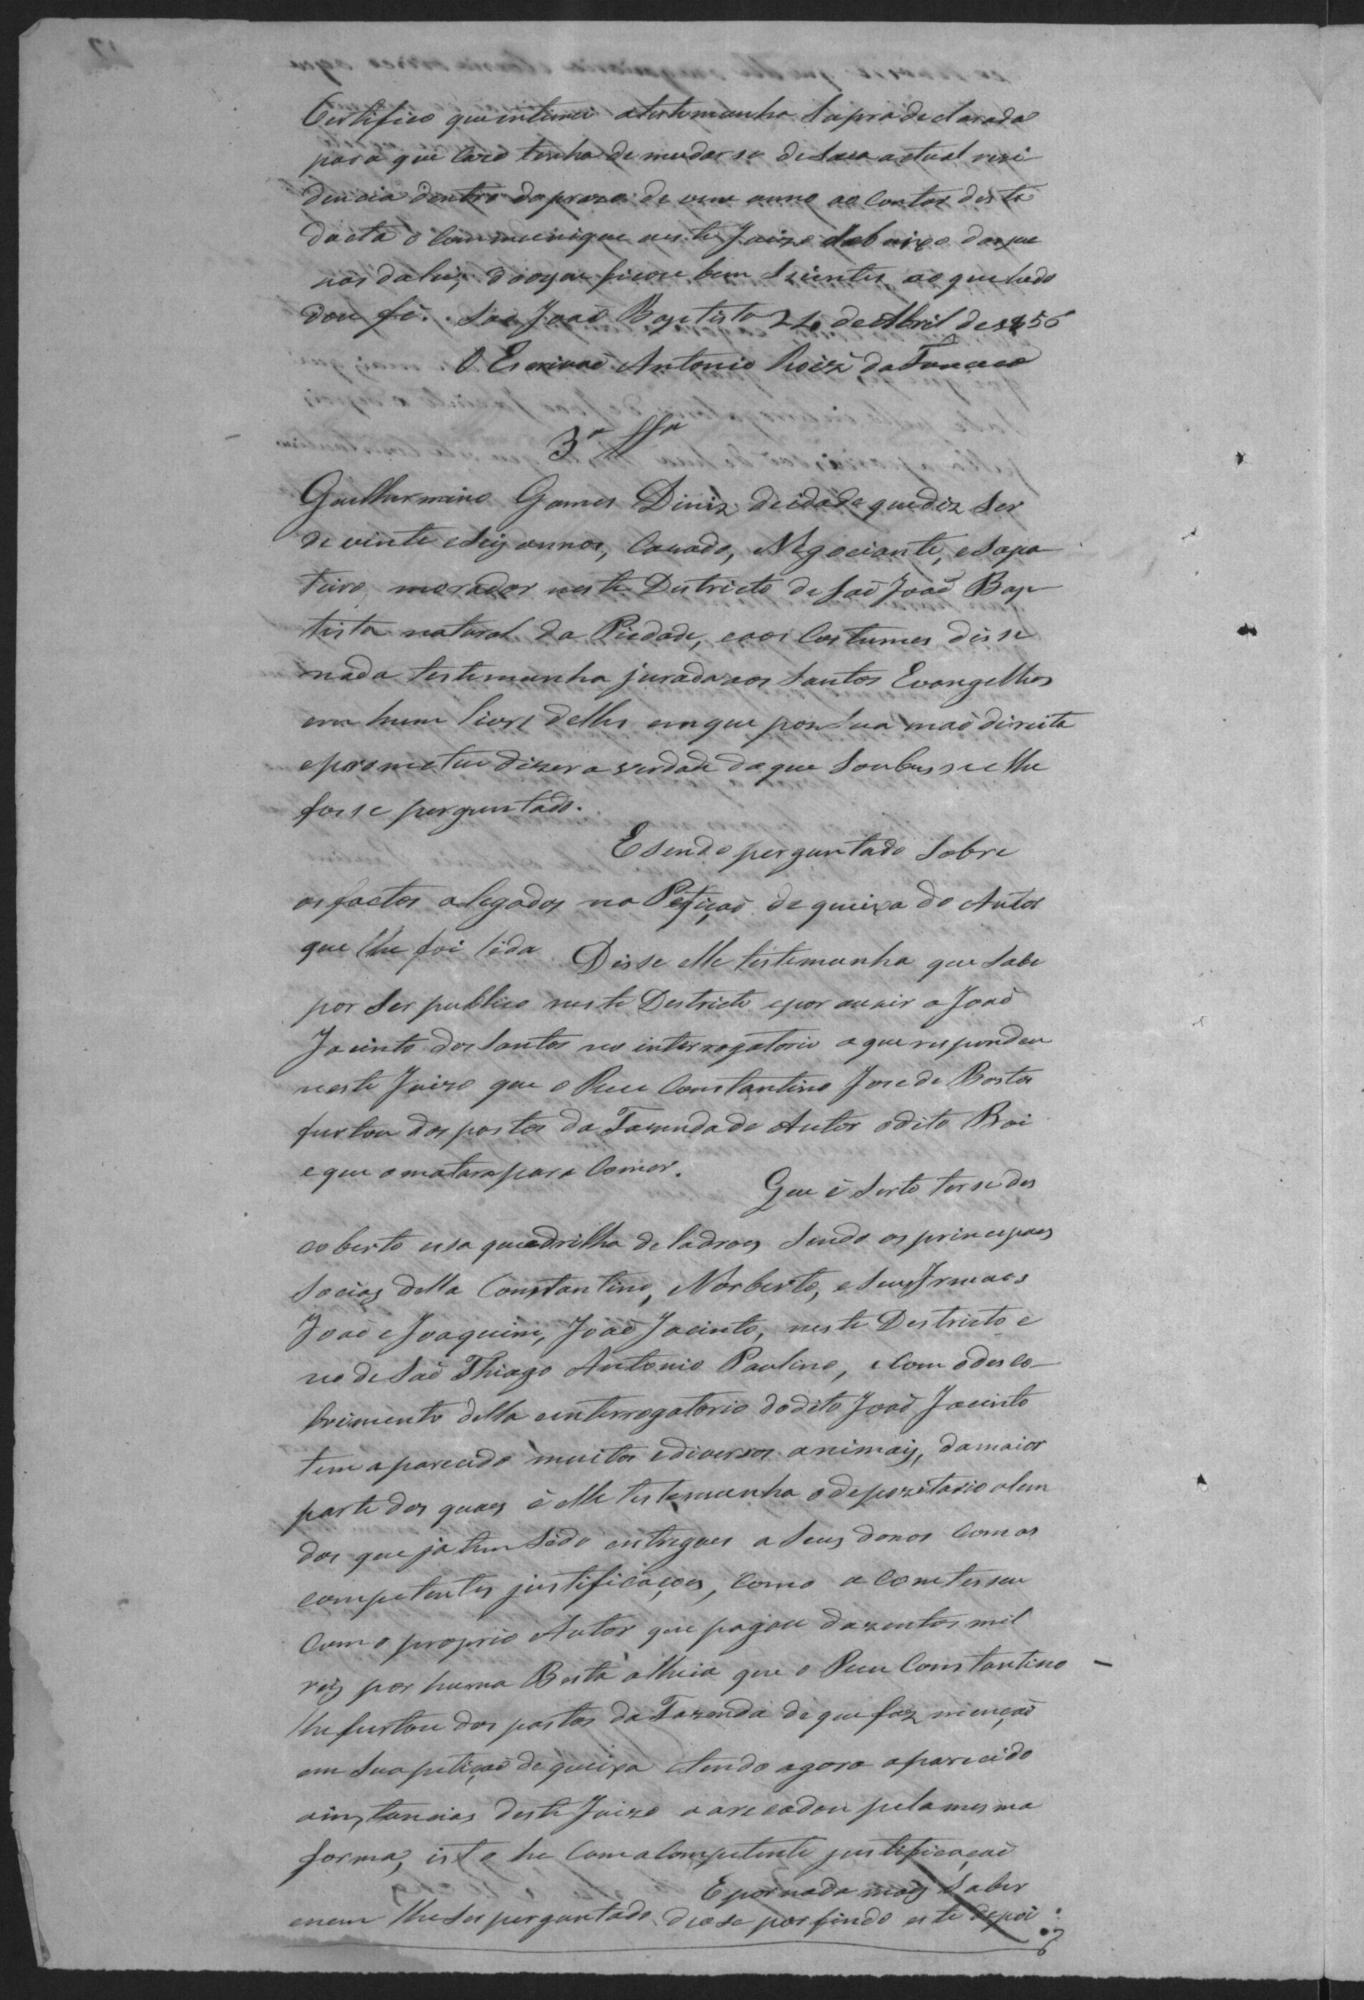 Certifico que intimei atestemunha Supra declarada
para que Caso tenha de mudarse de Sua actual rezi
dencia dentro doprazo de um anno ao Contar desta
dacta o Communique neste Juizo debaixo daspe
nas da lei, doque ficou bem Sciente, ao que tudo
dou fé. São João Baptista 24 de Abril de 1856
O Escrivaõ Antonio Roiz da Fonseca
3ª
Guilhermino Gomes Diniz de idade que diz Ser
de vinte eSeis annos, Cazado, Negociante, eSapa
teiro morador neste Destricto de Saõ Joaõ Bap
tista natural da Piedade, eaos Costumes disse
nada testemunha juradaaos Santos Evangelhos
em hum livro delles emque pos Sua maõ direita
eprometeu dizera verdade doque Soubesse elhe
fosse perguntado.
ESendo perguntado Sobre
osfactos alegados na Petiçaõ de queixa do Autor
que lhe foi lida. Disse elle testemunha que Sabe
por Ser publico neste Destricto epor ouvir a Joaõ
Jacinto dos Santos no interrogatorio aque respondeu
neste Juizo que o Reu Constantino Jose de Bastos
furtou dos pastos da Fazenda do Autor odito Boi
eque omatara para Comer.
Que é Serto terse des
coberto esa quadrilha deladroes Sendo os principaes
Socios della Constantino, Norberto, e Seus Irmaos
Joaõ e Joaquim, Joaõ Jacinto, neste Destricto e
no de Saõ Thiago Antonio Paulino, eCom odesco
brimento della einterrogatorio dodito Joaõ Jacinto
tem aparecido muitos ediversos animais, damaior
parte dos quaes é elle testemunha odepozitario alem
dos que ja tem Sido entregues a Seus donos Com as
competentes justificaçoes, Como aconteseu
Com o proprio Autor que pagou duzentos mil
reis por huma Besta alheia que o Reu Constantino
lhe furtou dos pastos da Fazenda de que faz mençaõ
em Sua petiçaõ de queixa etendo agora aparecido
ainstancias deste Juizo aarecadou pela mesma
forma, isto he Com aCompetente justificaçaõ
Epornada mais Saber
enem lhe Ser perguntado deose por findo este depoi